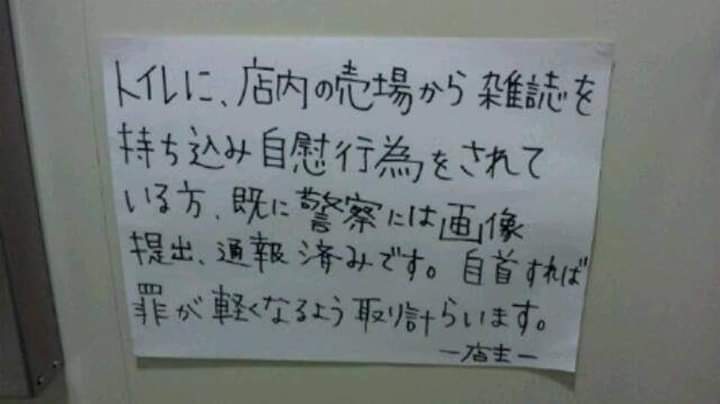 トイレに、店内の売場から雑誌を
持ち込み自慰行為をされて
いる方、既に警察には画像
提出、通報済みです。自首すれば
罪が軽くなるよう取り計らいます。
ー店主ー